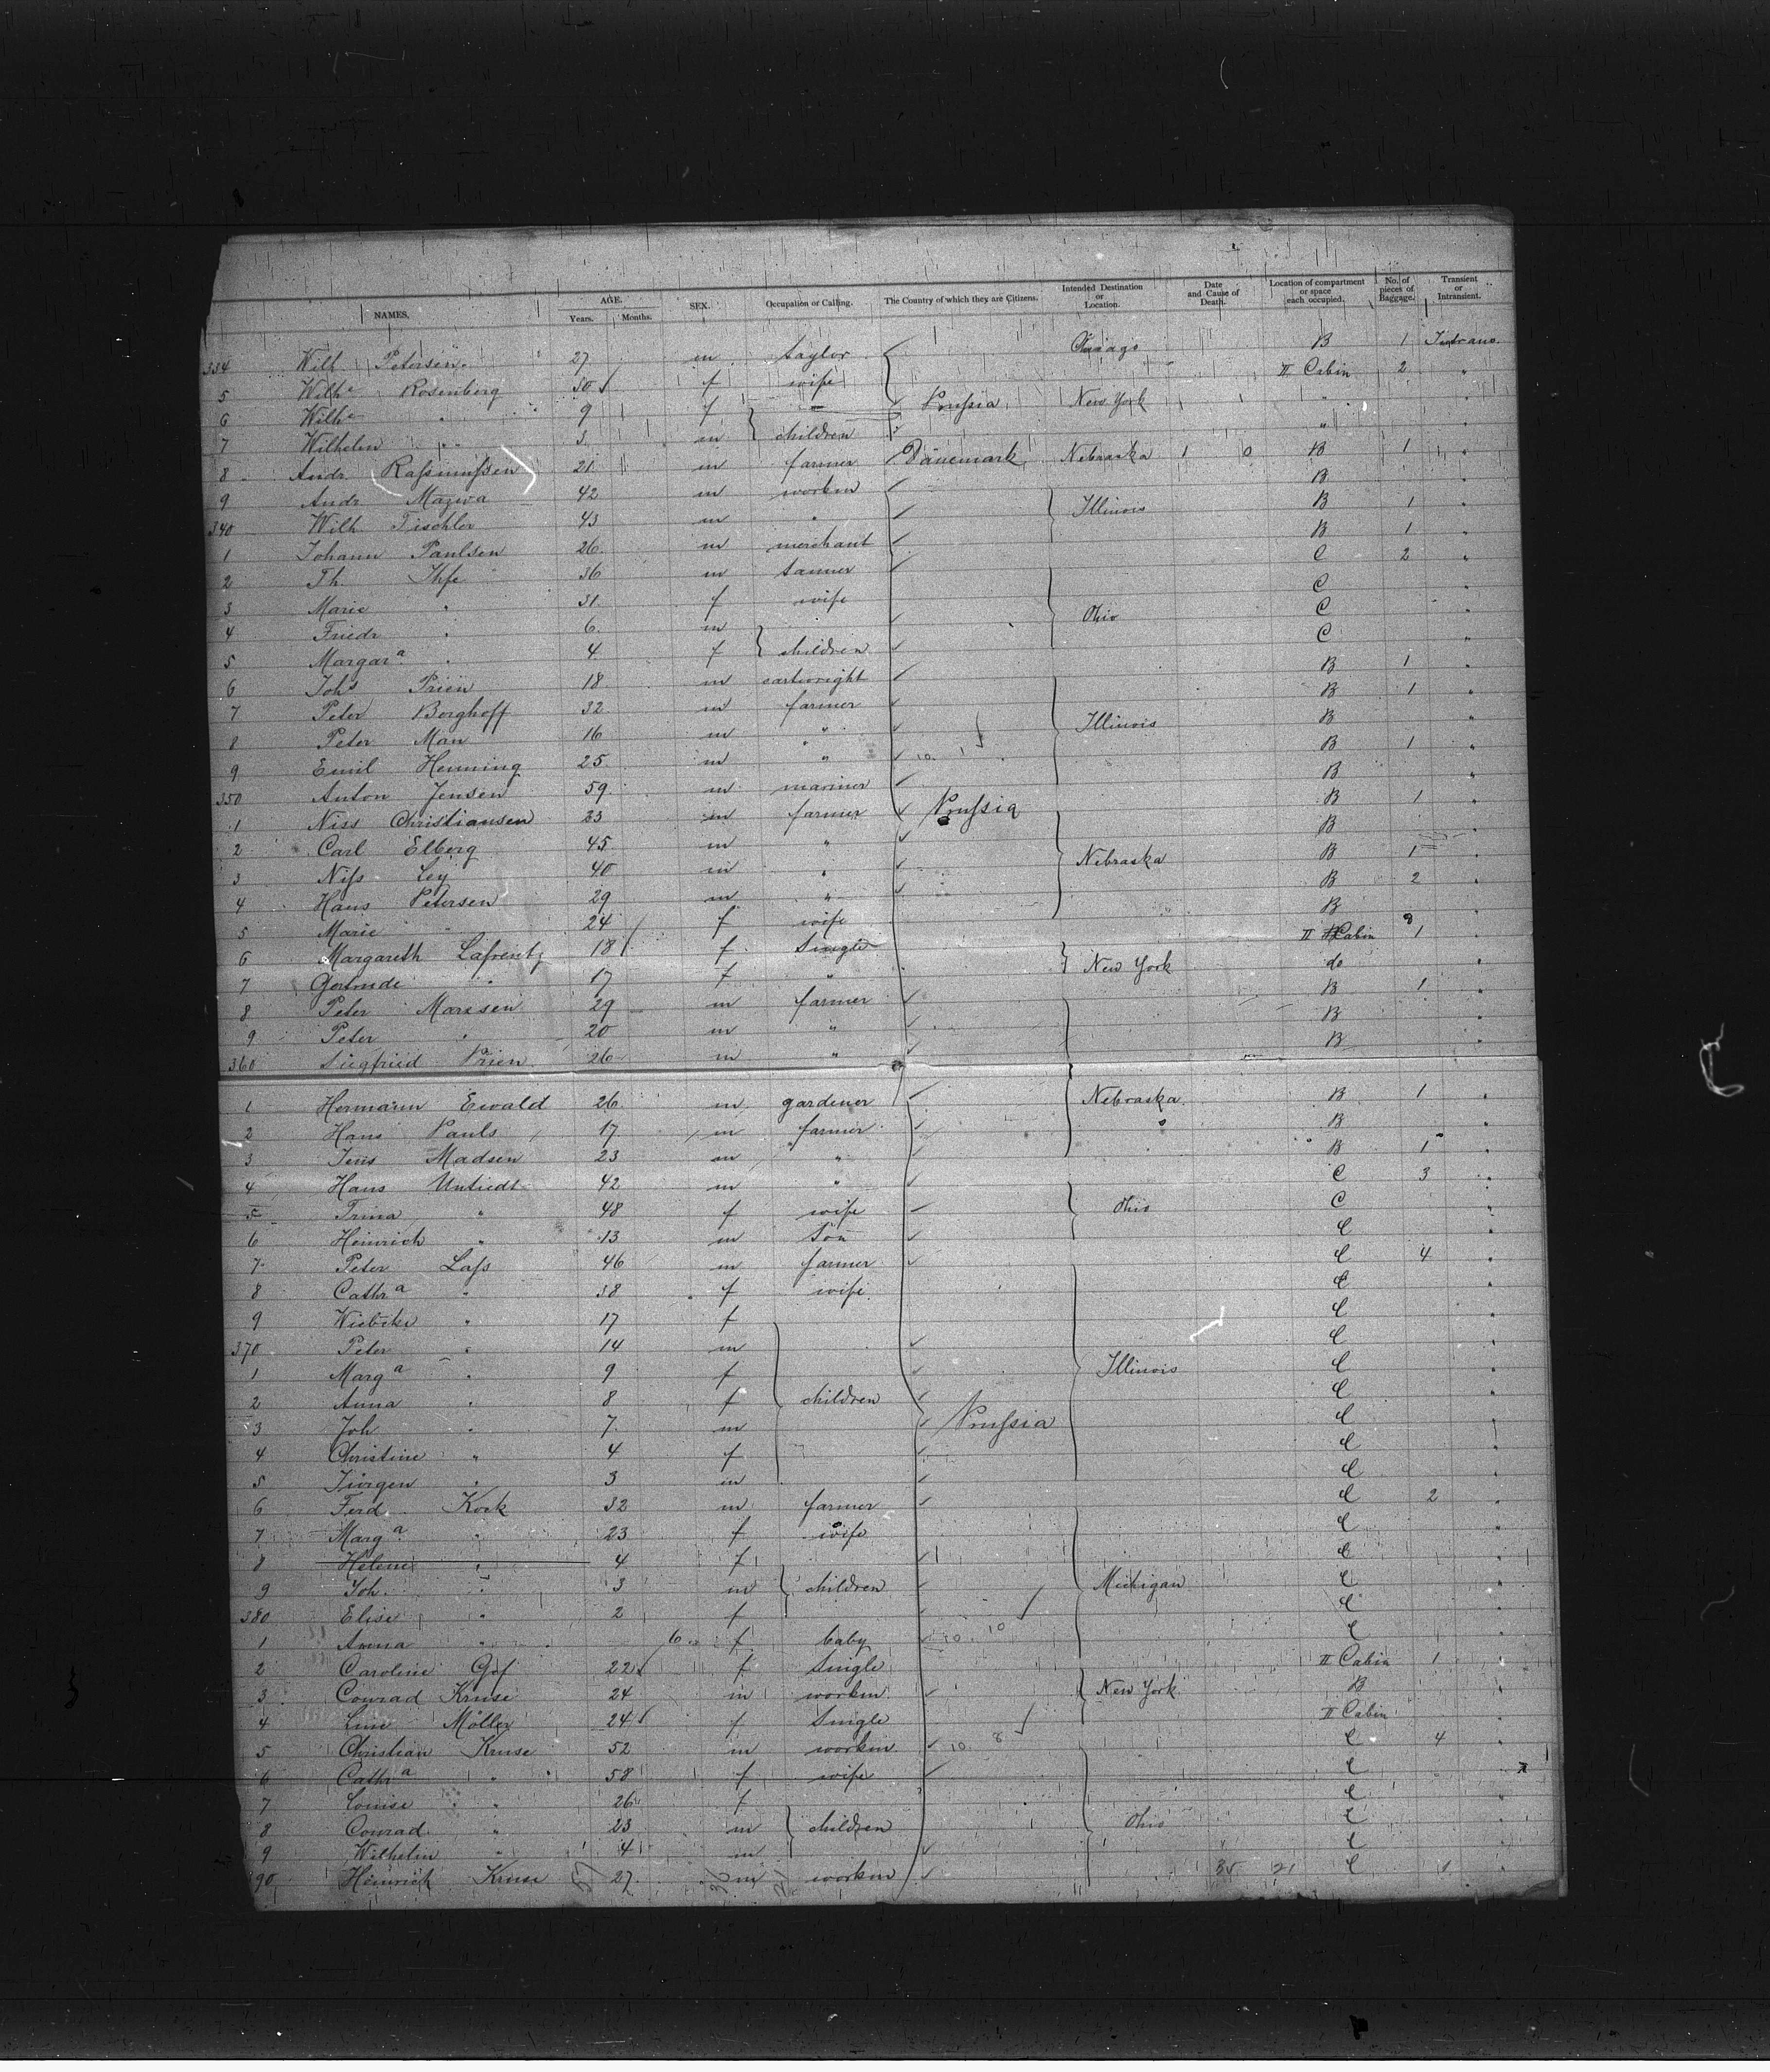 NAMES. AGE. Years. Months. SEX. Occupation or Calling. The Country of which they are Citizens. Intended Destination or Location. Date and Cause of Death. Location of compartment or space each occupied. No. of pieces of Baggage. Transient or Intransient.
334 Wilh Petersen 27 m taylor Chicago B 1 Intrans.
5 Wilhe Rosenberg 30 f wife II Cabin 2 "
6 Wilhe " 9 f Prussia New York " "
7 Wilhelm " 3 m children " "
8 Andr. Rassmussen 21 m farmer Dänemark Nebraska 1 0 B 1 "
9 Andr. Mazwa 42 m workm B "
340 Wilh Tischler 43 m " Illinois B 1 "
1 Johann Paulsen 26 m merchant B 1 "
2 Th. Ihfe 36 m tanner C 2 "
3 Marie " 31 f wife C "
4 Friedr " 6 m Ohio C "
5 Margara " 4 f children C "
6 Johs Prien 18 m cartwright B 1 "
7 Peter Borghoff 32 m farmer B 1 "
8 Peter Man 16 m " Illinois B "
9 Emil Henning 25 m " 10. 1 B 1 "
350 Anton Jensen 59 m mariner B "
1 Niss Christiansen 23 m farmer Prussia B 1 "
2 Carl Elberg 45 m " B "
3 Niss Ley 40 m " Nebraska B 1 "
4 Hans Petersen 29 m " B 2 "
5 Marie " 24 f wife B "
6 Margareth Lafrentz 18 f Single II Cabin 1 "
7 Gertrude " 17 f " New York do "
8 Peter Marxsen 29 m farmer B 1 "
9 Peter " 20 m " B "
360 Siegfried Prien 26 m " B "
1 Hermann Ewald 26 m gardener Nebraska B 1 "
2 Hans Pauls 17 m farmer B "
3 Jens Madsen 23 m " B 1 "
4 Hans Untiedt 42 m " C 3 "
5 Trina " 48 f wife Ohio C "
6 Heinrich " 13 m Son C "
7 Peter Lass 46 m farmer C 4 "
8 Cathra " 38 f wife C "
9 Wiebcke " 17 f C "
370 Peter " 14 m C "
1 Marga " 9 f Illinois C "
2 Anna " 8 f children C "
3 Joh " 7 m Prussia C "
4 Christine " 4 f C "
5 Jürgen " 3 m C "
6 Ferd. Kock 32 m farmer C 2 "
7 Marga " 23 f wife C "
8 Helene " 4 f C "
9 Joh. " 3 m children Michigan C "
380 Elise " 2 f C "
1 Anna " 6 f baby 10. 10 C "
2 Caroline Gof 22 f Single II Cabin 1 "
3 Conrad Kruse 24 m workm New York B "
4 Line Möller 24 f Single II Cabin "
5 Christian Kruse 52 m workm 10. 8 C 4 "
6 Cathra " 58 f wife C
7 Louise " 26 f C "
8 Conrad " 23 m children Ohio C "
9 Wilhelm " 4 m C "
90 Heinrich Kruse 27 m workm 35 21 C 1 "